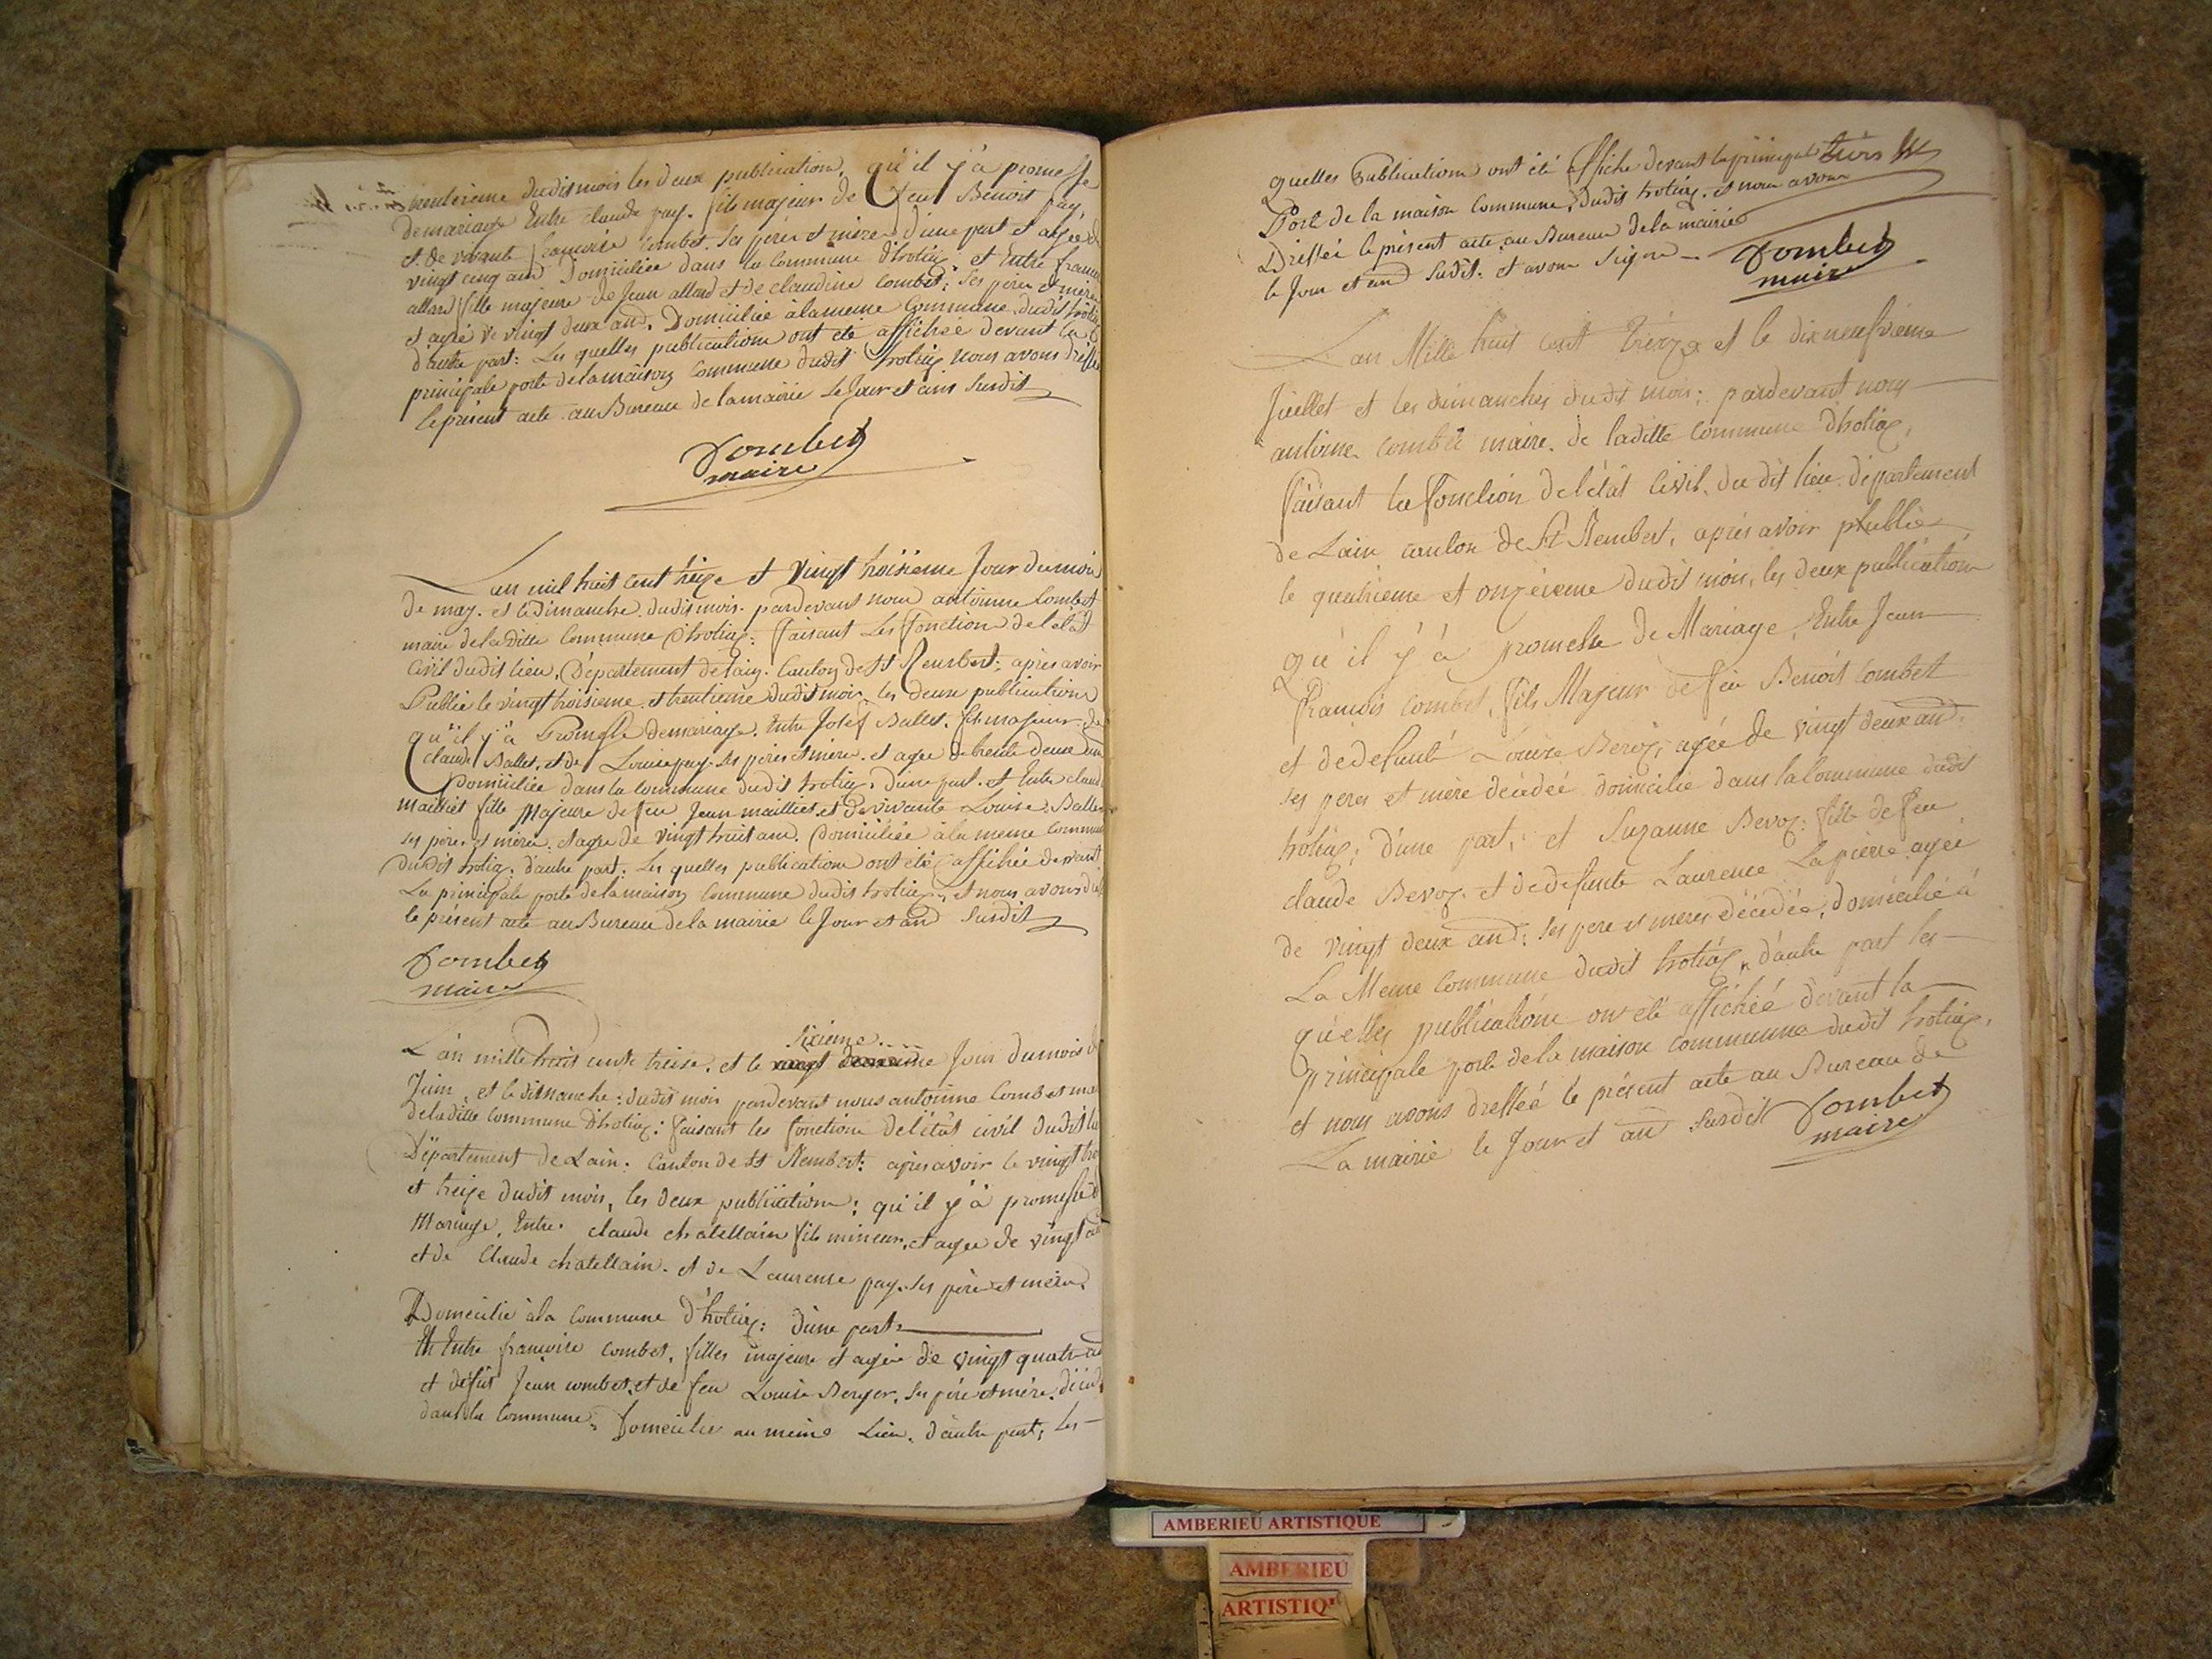 dudit mois les deux publication, qu'il y'à promesse
de mariage Entre claude pay. fils majeur de feu Benoit pay,
et de vivante françoise Combet. ses père et mère d'une part et agée de
vingt cinq and Domiciliée dans la Commune d'hotiaz et Entre
allard fille majeure de Jean allard et de claudine Combet; ses père et mère
et agée de vingt deux and, Domiciliée à la meme Commune dudit
d'autre part: Les quelles publication ont été affichée devant la
principale porte de la maison Commune dudit hotiaz nous avons
le présent acte au Bureau de la mairie le Jour et ans susdit
Combet
maire
Lan mil huit cent treize et vingt troisieme Jour du mois
de may. et le dimanche dudit mois. pardevant nous antoinne Combet
maire de la ditte Commune d'hotiaz: faisant Les fonction de létat
Civil dudit lieu, Département de lain. Canton de St Rembert: après avoir
Publié le vingt troisieme et trentieme dudit mois les deux publication
qu'il y'à de mariage. Entre Josef Ballet. fils majeur de
claude Ballet, et de Louise pay. ses père et mère. et agée de trente deux
Domiciliée dans la Commune dudit hotiaz. d'une part. et Entre
fille Majeure de feu Jean et de vivante Louise
ses père et mère. et agée de vingt huit and. Domiciliée à la meme
dudit hotiaz. d'autre part: Les quelles publication ont été affichée devant
La principale porte de la maison Commune dudit hotiaz, et nous avons
le présent acte au Bureau de la mairie le Jour et and susdit
Combet
maire
sixieme
L'an mille huit cents treise. et le Jour du mois
Juin, et le dimanche: dudit mois pardevant nous antoinne Combet
de la ditte Commune d'hotiaz: faisant les fonction de létât civil dudit
Département de Lain: Canton de St Rembert: après avoir le vingt
et treize dudit mois, les deux publication: qu'il y'à promesse
Mariage. Entre. claude chatellain fils mineur. et agée de vingt
et de Claude chatellain. et de Laurense pay. ses père et mère.
Domicilie à la Commune d'hotiaz: d'une part.
Et Entre françoise Combet, filles majeure et agée de vingt quatre
et Jean Combet. et de feu Louise Berger. ses père et mère.
dans la Commune, Domicilie au même Lieu. d'autre part; Les
quelles Publication ont été affiche devant la principal
Porte de la maison Commune, dudit hotiaz. et nous avons
Dressée le présent acte au Bureau de la mairie
le Jour et and susdit. et avons Signe Combet
maire
Lan Mille huit cent treize et le dix neufvieme
Juillet et les dimanches dudit mois; pardevant nous
antoinne Combet maire. de laditte Commune d'hotiaz,
faisant la fonction de létât Civil. du dit lieu. département
de Lain canton de St Rembert, après avoir publie
le quatrieme et onzieme dudit mois, les deux publication
qu'il y'à promesse de Mariage, Entre Jean
françois Combet, fils Majeur de feu Benoit Combet
et de defunte Louise Bevoz; agée de vingt deux and:
ses peres et mère décédée domicilié dans la Commune dudit
hotiaz; d'une part, et Suzanne Bevoz: fille de feu
claude Bevoz. et de defunte Laurence Lapierre agée
de vingt deux and; ses pere et meres décédée, domicilié à
La Meme Commune dudit hotiaz, d'autre part les
quelles publication ont été affichéé devant la
principale porte de la maison communne dudit hotiaz,
et nous avons dresséé le présent acte au Bureau de
La mairie le Jour et an susdit Combet
maire
AMBERIEU ARTISTIQUE
AMBERIEU